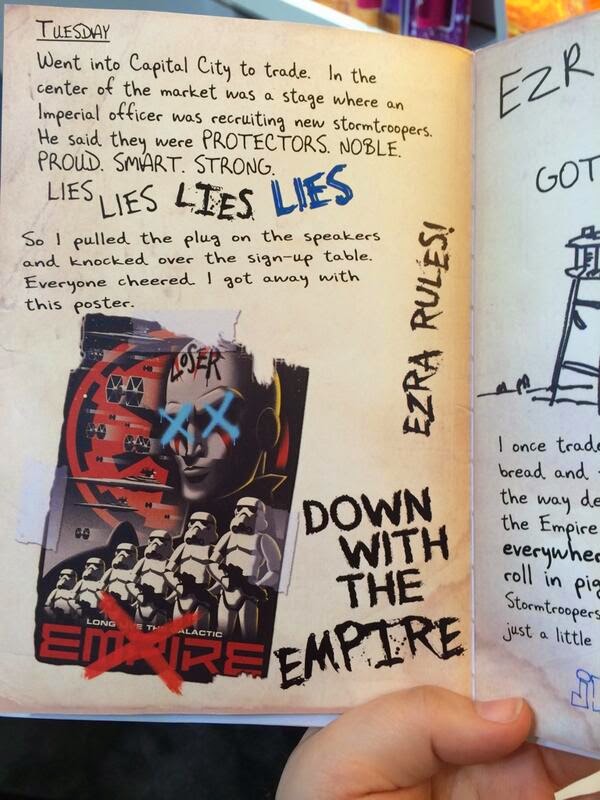 TUESDAY
Went into Capital City to trade. In the
center of the market was a stage where an
Imperial officer was recruiting new stormtroopers.
He said they were PROTECTORS. NOBLE.
PROUD. SMART. STRONG.
LIES LIES LIES LIES
So I pulled the plug on the speakers
and knocked over the sign-up table.
Everyone cheered. I got away with
this poster.
EZRA RULES!
LOSER
XX
LONG THE GALACTIC
EMPIRE
DOWN
WITH
THE
EMPIRE
EZR
GOT
I once trade
bread and
the way de
the Empire
everywher
roll in pig
Stormtroopers
just a little